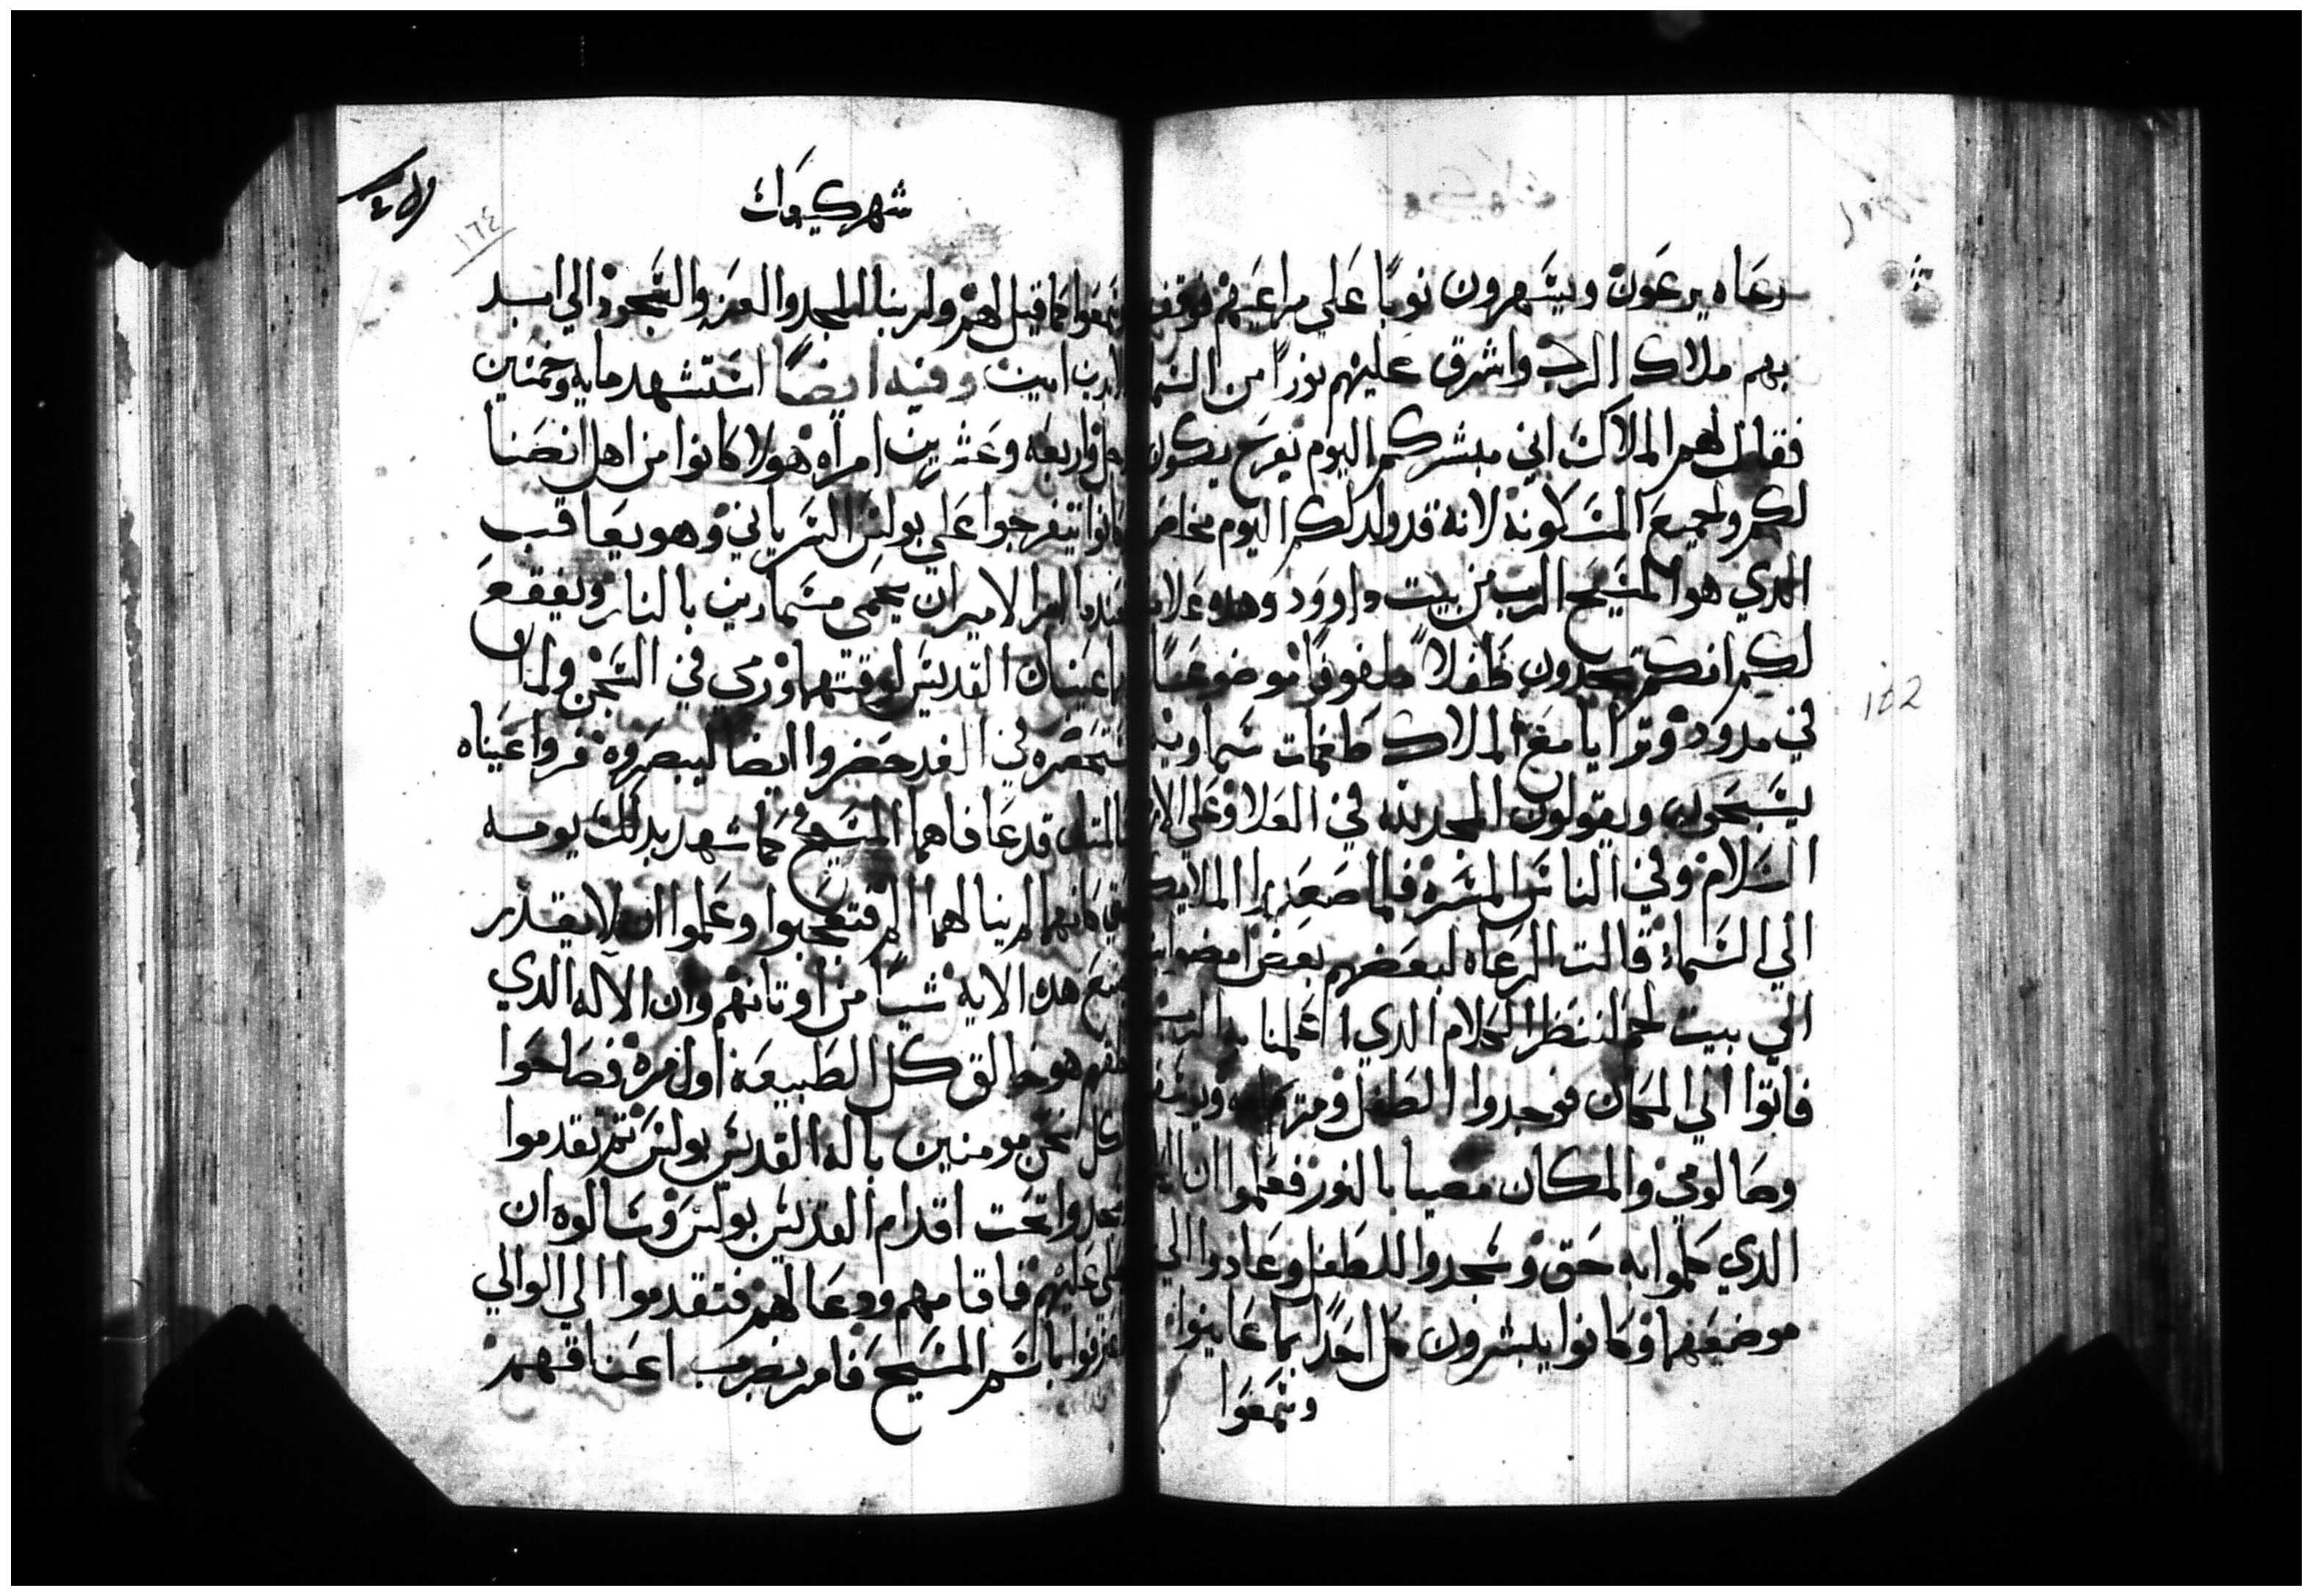 رعاه يرعون ويسهرون نوبا علي مراعيهم فوقف
بهم ملاك الرب واشرق عليهم نورا من السما
فقال لهم الملاك اني مبشركم اليوم بفرح يكون
لكم ولجميع المسكونة لانه قد ولد لكم اليوم مخلص
الدي هو المسيح الرب من بيت داوود وهده علامه
لكم انكم تجدون طفلا ملفوفا موضوعا
في مدود وترايا مع الملاك طغمات سماويه
يسبحون ويقولون المجد لله في العلا وعلي الار
السلام وفي الناس المسره فلما صعدوا الملايكه
الي السماء قالت الرعاه لبعضهم بعض امضوا بنا
الي بيت لحم لننظر الكلام الدي اعلمنا به الرب
فاتوا الي المكان فوجدوا الطفل ومريم ويوسف
وصالومي والمكان مضيا بالنور فعلموا ان
الدي كلموا به حق وسجدوا للطفل وعادوا الي
موضعهم وكانوا يبشرون كل احدا بما عاينوا
وسمعوا
182
شهر كيهك
١٦٤
وسمعوا كما قيل لهم ولربنا المجد والعز والسجود الي ابد
الابدين امين وفيه ايضا استشهد مايه وخمسين
رجل واربعه وعشرين امراه هولا كانوا من اهل انصنا
كانوا يتفرجوا علي بولس السرياني وهو يعاقب
عندما امر الامير ان يحمي مسمارين بالنار ويقفع
بها عينان القديس لوقتها ورمي في السجن ولما
ستحضره في الغد حضروا ايضا ليبصروه فروا عيناه
سالمتان قد عافاهما المسيح كما شهد بدلك يومه
كانهما لم ينالهما الم فتعجبوا وعلموا انه لا يقدر
يصنع هده الايه شيا من اوتانهم وان الاله الدي
هو خالق كل الطبيعة اول مرة فصاحوا
الكل نحن مومنين باله القديس بولس تم تقدموا
سجدوا تحت اقدام القديس بولس وسالوه ان
يصلي عليهم فاقامهم ودعا لهم فتقدموا الي الوالي
اعترفوا باسم المسيح فامر بضرب اعناقهم